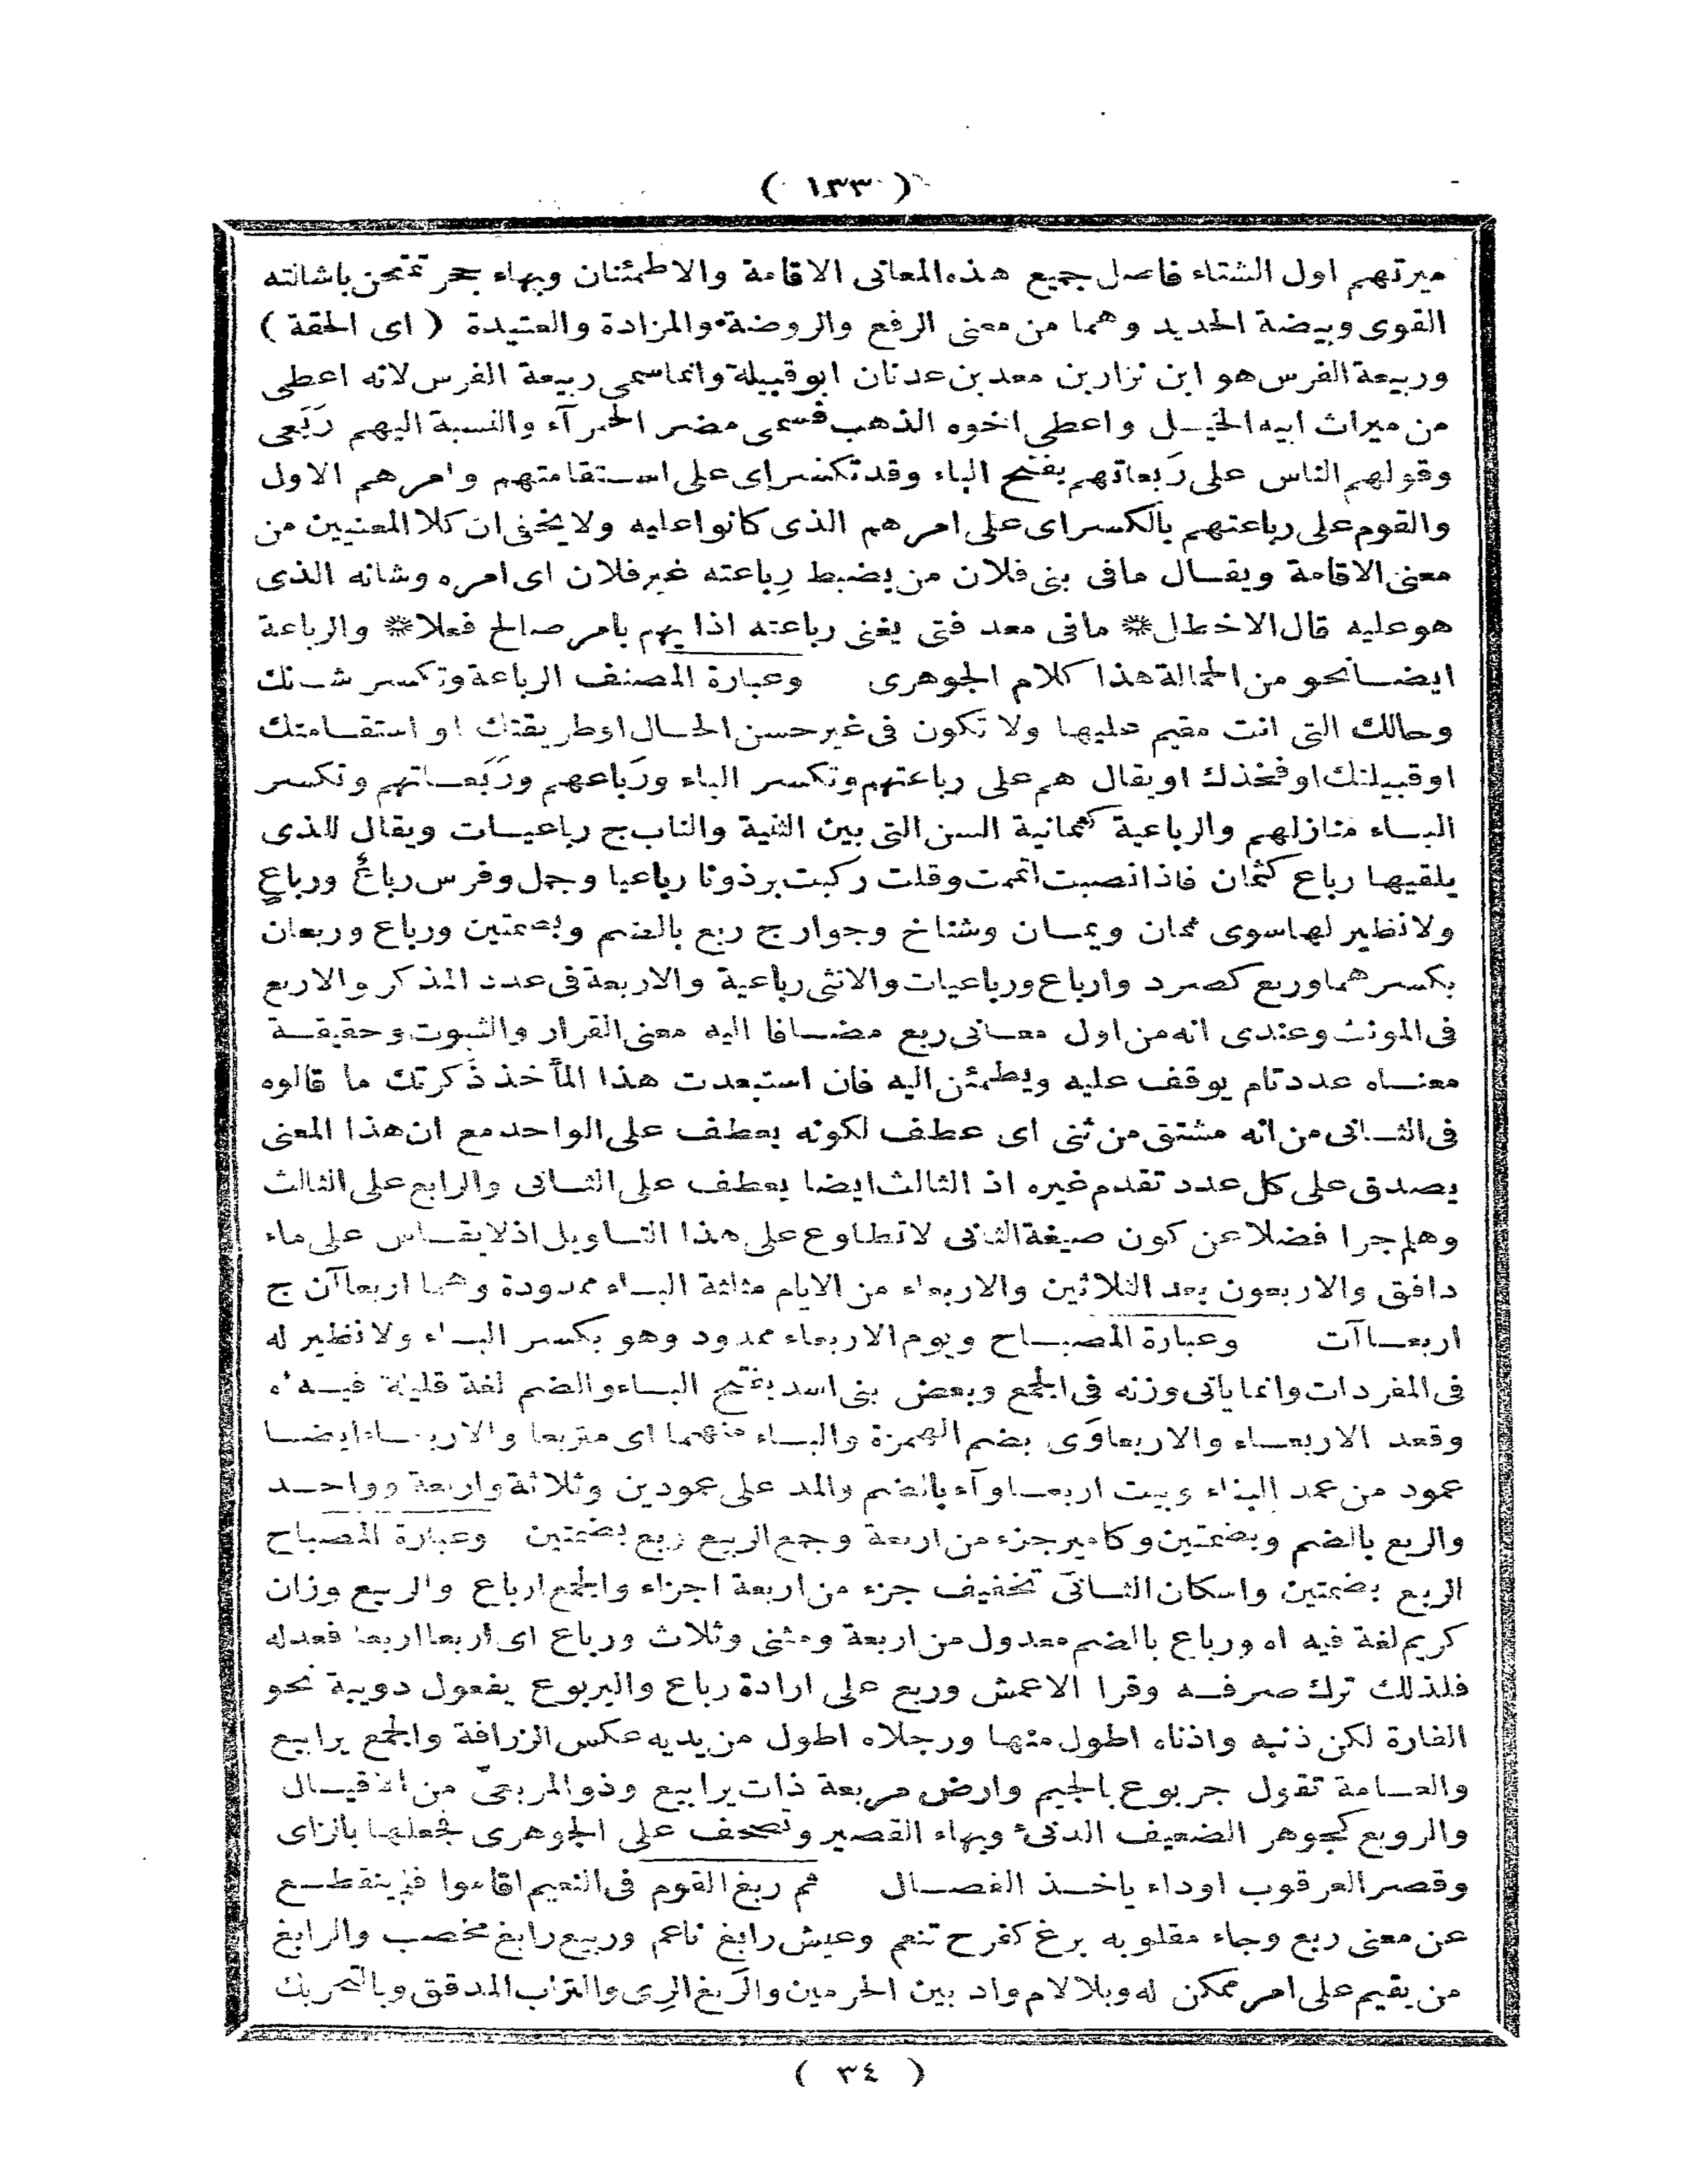 ( ١٣٣ )
ميرتهم اول الشتاء فاصل جميع هذه المعانى الاقامة والاطمئنان وبهاء حجر تمتحن باشالته
القوى وبيضة الحديد وهما من معنى الرفع والروضة والمزادة والعتيدة ( اى الحقة )
وربيعة الفرس هو ابن نزار بن معد بن عدنان ابو قبيلة وانما سمى ربيعة الفرس لانه اعطى
من ميراث ابيه الخيــل واعطى اخوه الذهب فسمى مضر الحمرآء والنسبة اليهم رَبَعى
وقولهم الناس على رَبعاتهم بفتح الباء وقد تكسر اى على استقامتهم وامرهم الاول
والقوم على رباعتهم بالكسر اى على امرهم الذى كانوا عليه ولا يخفى ان كلا المعنيين من
معنى الاقامة ويقــال ما فى بنى فلان من يضبط رِباعته غير فلان اى امره وشانه الذى
هو عليه قال الاخطل * ما فى معد فتى يغنى رباعته اذا يهم بامر صالح فعلا * والرباعة
ايضــا نحو من الحمالة هذا كلام الجوهرى وعبارة المصنف الرباعة وتكسر شــانك
وحالك التى انت مقيم عليها ولا تكون فى غير حسن الحــال او طريقتك او استقــامتك
او قبيلتك او فخذك او يقال هم على رباعتهم وتكسر الباء ورَباعهم ورَبَعــاتهم وتكسر
البــاء منازلهم والرباعية كثمانية السن التى بين الثنية والناب ج رباعيــات ويقال للذى
يلقيها رباع كثمان فاذا نصبت اتممت وقلت ركبت برذونا رباعيا وجمل وفرس رباعٌ ورباعٍ
ولا نظير لها سوى ثمان ويمــان وشناخ وجوار ج ربع بالضم وبضمتين ورباع وربعان
بكسرهما وربع كصرد وارباع ورباعيات والانثى رباعية والاربعة فى عدد المذكر والاربع
فى المونث وعندى انه من اول معــانى ربع مضــافا اليه معنى القرار والثبوت وحقيقــة
معنــاه عدد تام يوقف عليه ويطمئن اليه فان استبعدت هذا المأخذ ذكرتك ما قالوه
فى الثــانى من انه مشتق من ثنى اى عطف لكونه يعطف على الواحد مع ان هذا المعنى
يصدق على كل عدد تقدم غيره اذ الثالث ايضا يعطف على الثــانى والرابع على الثالث
وهلم جرا فضلا عن كون صيغة الثانى لا تطاوع على هذا التــاويل اذ لا يقــاس على ماء
دافق والاربعون بعد الثلاثين والاربعاء من الايام مثلثة البــاء ممدودة وهما اربعاآن ج
اربعــاآت وعبارة المصبــاح ويوم الاربعاء ممدود وهو بكسر البــاء ولا نظير له
فى المفردات وانما ياتى وزنه فى الجمع وبعض بنى اسد بفتح البــاء والضم لغة قليلة فيــه اه
وقعد الاربعــاء والاربعاوَى بضم الهمزة والبــاء منهما اى متربعا والاربعــاء ايضــا
عمود من عمد البناء وبيت اربعــاوآء بالضم والمد على عمودين وثلاثة واربعة وواحــد
والربع بالضم وبضمتين وكامير جزء من اربعة وجمع الربيع ربع بضمتين وعبارة المصباح
الربع بضمتين واسكان الثــانى تخفيف جزء من اربعة اجزاء والجمع ارباع والربيع وزان
كريم لغة فيه اه ورباع بالضم معدول من اربعة ومثنى وثلاث ورباع اى اربعا اربعا فعدله
فلذلك ترك صرفــه وقرا الاعمش وربع على ارادة رباع واليربوع يفعول دويبة نحو
الفارة لكن ذنبه واذناه اطول منها ورجلاه اطول من يديه عكس الزرافة والجمع يرابيع
والعــامة تقول جربوع بالجيم وارض مربعة ذات يرابيع وذو المربعىّ من الاقيــال
والروبع كجوهر الضعيف الدنئ وبهاء القصير وتصحف على الجوهرى فجعلها بالزاى
وقصر العرقوب اوداء ياخــذ الفصــال ثم ربغ القوم فى النعيم اقاموا فلم ينقطــع
عن معنى ربع وجاء مقلوبه برغ كفرح تنعم وعيش رابغ ناعم وربيع رابغ مخصب والرابغ
من يقيم على امر ممكن له وبلا لام واد بين الحرمين والرَبغ الرى والتراب المدقق وبالتحريك
( ٣٤ )